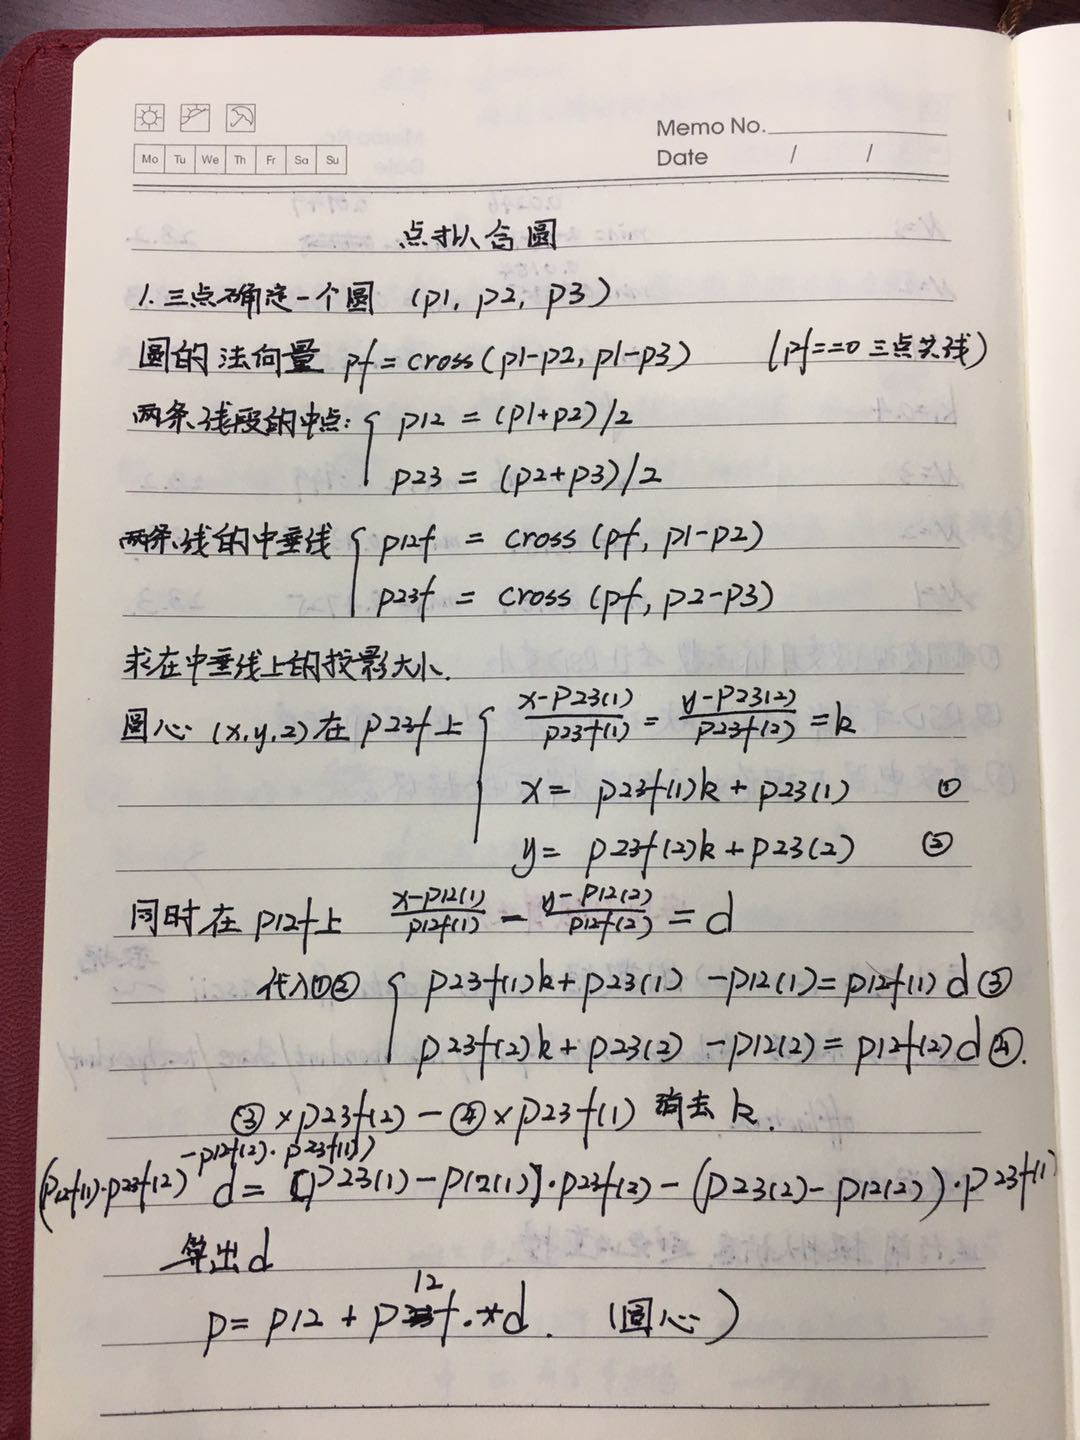 Memo No.
Mo Tu We Th Fr Sa Su
Date / /
点拟合圆
1. 三点确定一个圆 (p1, p2, p3)
圆的法向量 pf = cross(p1-p2, p1-p3) (pf==0 三点共线)
两条线段的中点: { p12 = (p1+p2)/2
p23 = (p2+p3)/2
两条线的中垂线 { p12f = cross(pf, p1-p2)
p23f = cross(pf, p2-p3)
求在中垂线上的投影大小.
圆心 (x,y,z) 在 p23f 上 { x-p23(1)/p23f(1) = y-p23(2)/p23f(2) = k
x = p23f(1)k + p23(1) ①
y = p23f(2)k + p23(2) ②
同时在 p12f上 x-p12(1)/p12f(1) = y-p12(2)/p12f(2) = d
代入①② { p23f(1)k + p23(1) - p12(1) = p12f(1) d ③
p23f(2)k + p23(2) - p12(2) = p12f(2) d ④.
③ × p23f(2) - ④ × p23f(1) 消去 k.
(p12f(1)·p23f(2) - p12f(2)·p23f(1)) d = [p23(1) - p12(1)]·p23f(2) - (p23(2) - p12(2))·p23f(1)
算出d
p = p12 + p12f.*d. (圆心)